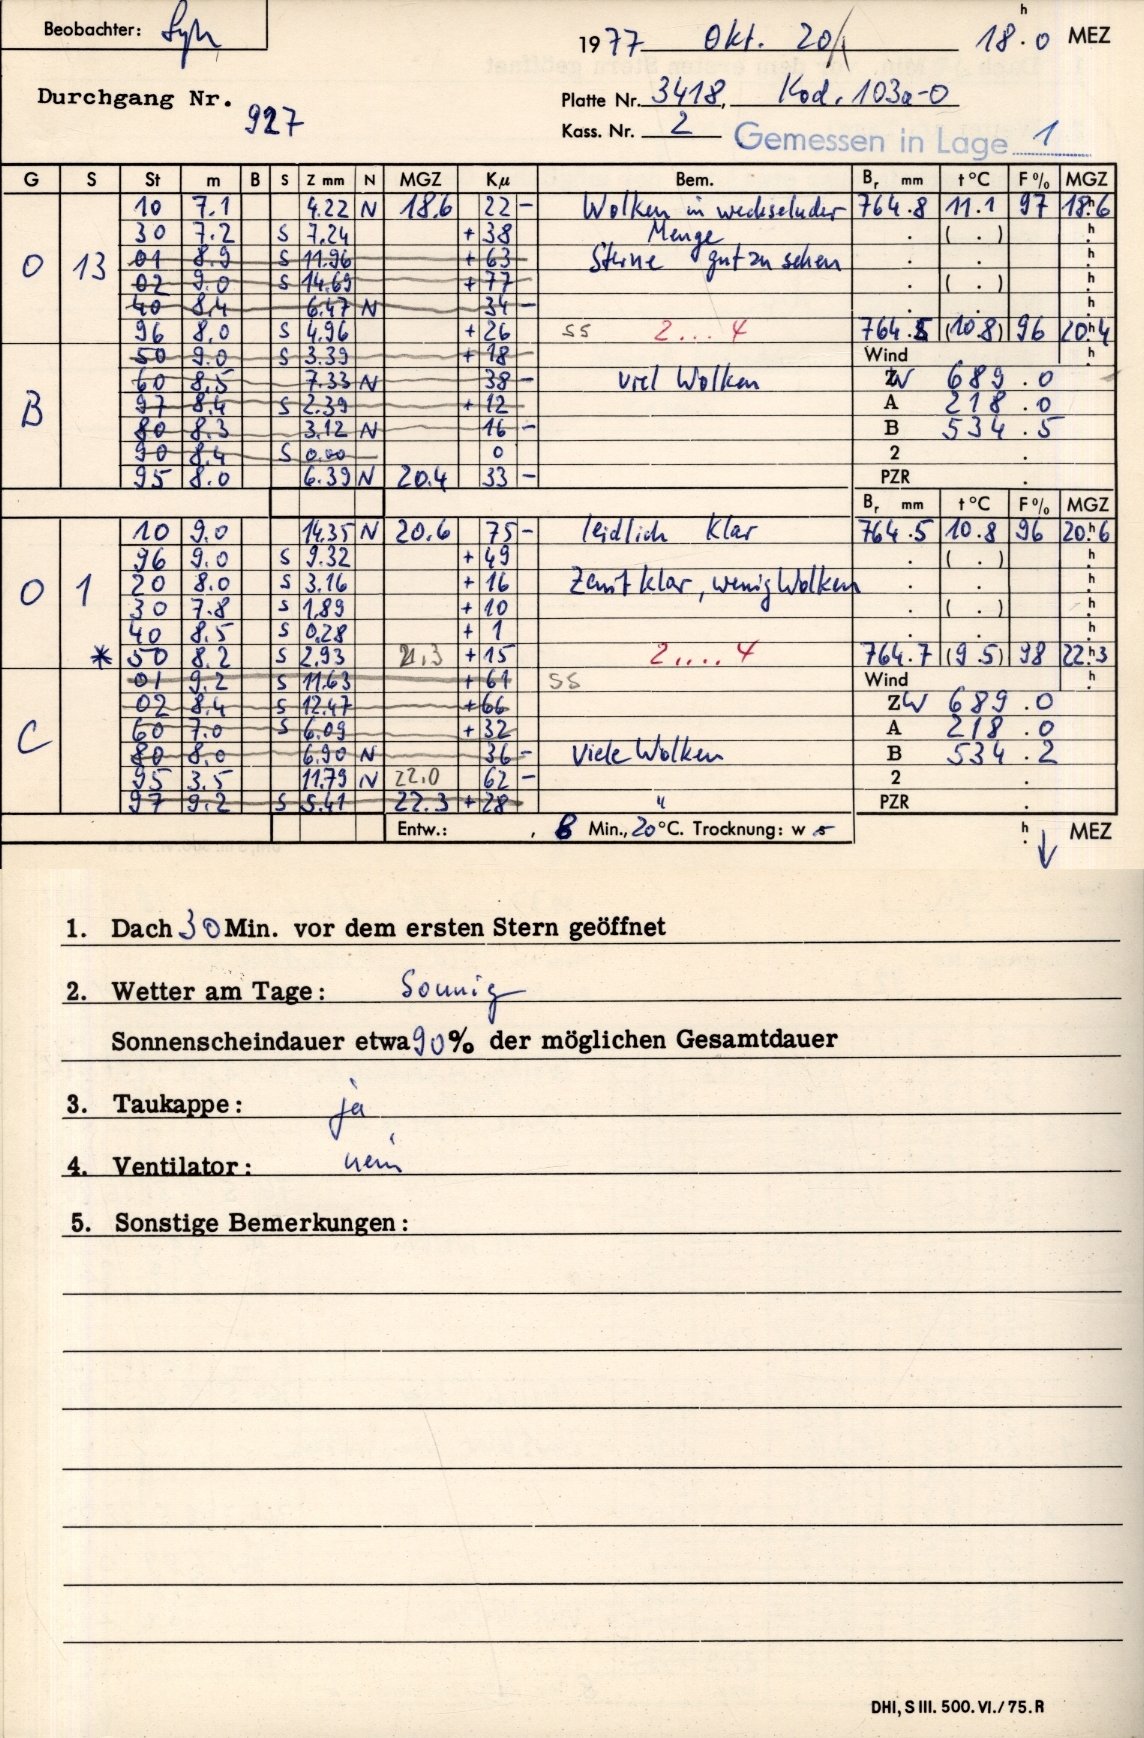 Beobachter:
1977 Okt. 20/ 18.0 h MEZ
Durchgang Nr. 927
Platte Nr. 3418, Kod. 103a-0
Kass. Nr. 2 Gemessen in Lage 1
G S St m B S Z mm N MGZ Kµ Bem. Br mm t°C F% MGZ
10 7.1 4.22 N 18.6 22 - Wolken in wechselnder 764.8 11.1 97 18h6
30 7.2 S 7.24 + 38 Menge . ( . ) h
0 13 01 8.9 S 11.96 + 63 Sterne gut zu sehen . . h
02 9.0 S 14.69 + 77 . ( . ) h
40 8.4 6.47 N 34 - . . h
96 8.0 S 4.96 + 26 SS 2...4 764.5 (10.8) 96 20h4
B 50 9.0 S 3.39 + 18 Wind h
60 8.5 7.33 N 38 - viel Wolken ZW 689.0
97 8.4 S 2.39 + 12 A 218.0
80 8.3 3.12 N 16 - B 534.5
90 8.4 S 0.00 0 2 .
95 8.0 6.39 N 20.4 33 - PZR .
Br mm t°C F% MGZ
10 9.0 14.35 N 20.6 75 - leidlich klar 764.5 10.8 96 20h6
96 9.0 S 9.32 + 49 . ( . ) h
0 1 20 8.0 S 3.16 + 16 Zenit klar, wenig Wolken . . h
30 7.8 S 1.89 + 10 . ( . ) h
40 8.5 S 0.28 + 1 . . h
* 50 8.2 S 2.93 21.3 + 15 2....4 764.7 (9.5) 98 22h3
C 01 9.2 S 11.63 + 61 SS Wind h
02 8.4 S 12.47 + 66 ZW 689.0
60 7.0 S 6.09 + 32 A 218.0
80 8.0 6.90 N 36 - Viele Wolken B 534.2
95 3.5 11.79 N 22.0 62 - 2 .
97 9.2 S 5.41 22.3 + 28 " PZR .
Entw.: , 8 Min., 20°C. Trocknung: w s h MEZ
1. Dach 30 Min. vor dem ersten Stern geöffnet
2. Wetter am Tage: Sonnig
Sonnenscheindauer etwa 90% der möglichen Gesamtdauer
3. Taukappe: ja
4. Ventilator: nein
5. Sonstige Bemerkungen:
DHI, S III. 500. VI./75. R